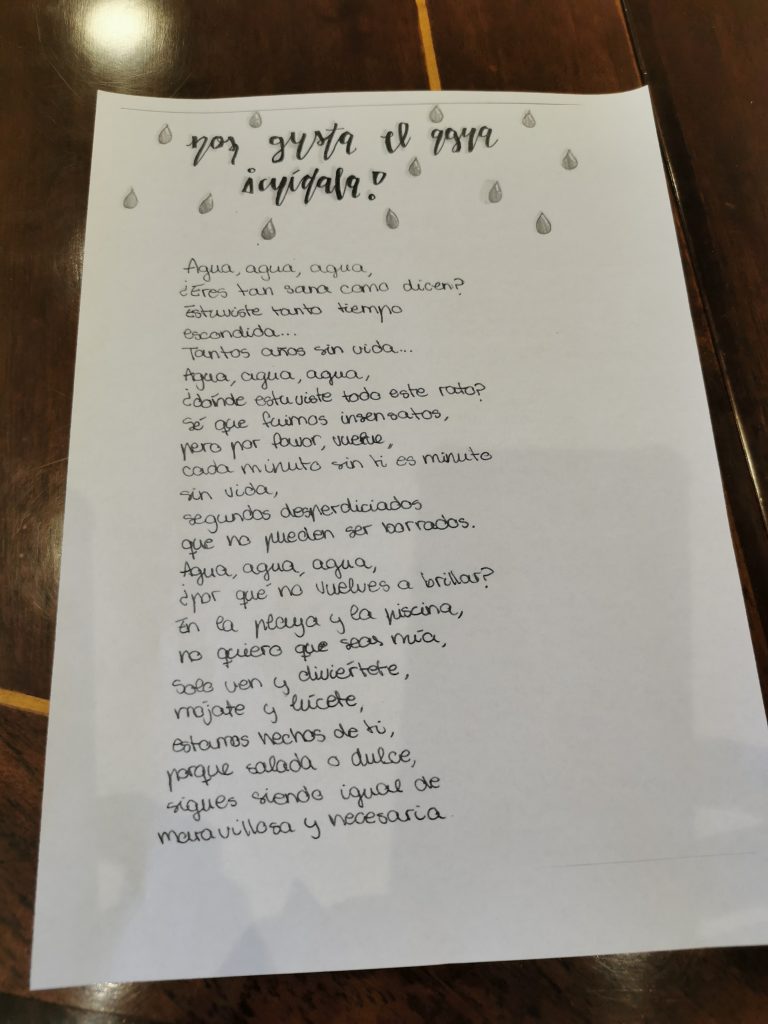 nos gusta el agua
¡cuídala!
Agua, agua, agua,
¿Eres tan sana como dicen?
Estuviste tanto tiempo
escondida...
Tantos años sin vida...
Agua, agua, agua,
¿dónde estuviste todo este rato?
Sé que fuimos insensatos,
pero por favor, vuelve,
cada minuto sin ti es minuto
sin vida,
segundos desperdiciados
que no pueden ser borrados.
Agua, agua, agua,
¿por qué no vuelves a brillar?
En la playa y la piscina,
no quiero que seas mía,
Solo ven y diviértete,
mójate y lúcete,
estamos hechos de ti,
porque salada o dulce,
sigues siendo igual de
maravillosa y necesaria